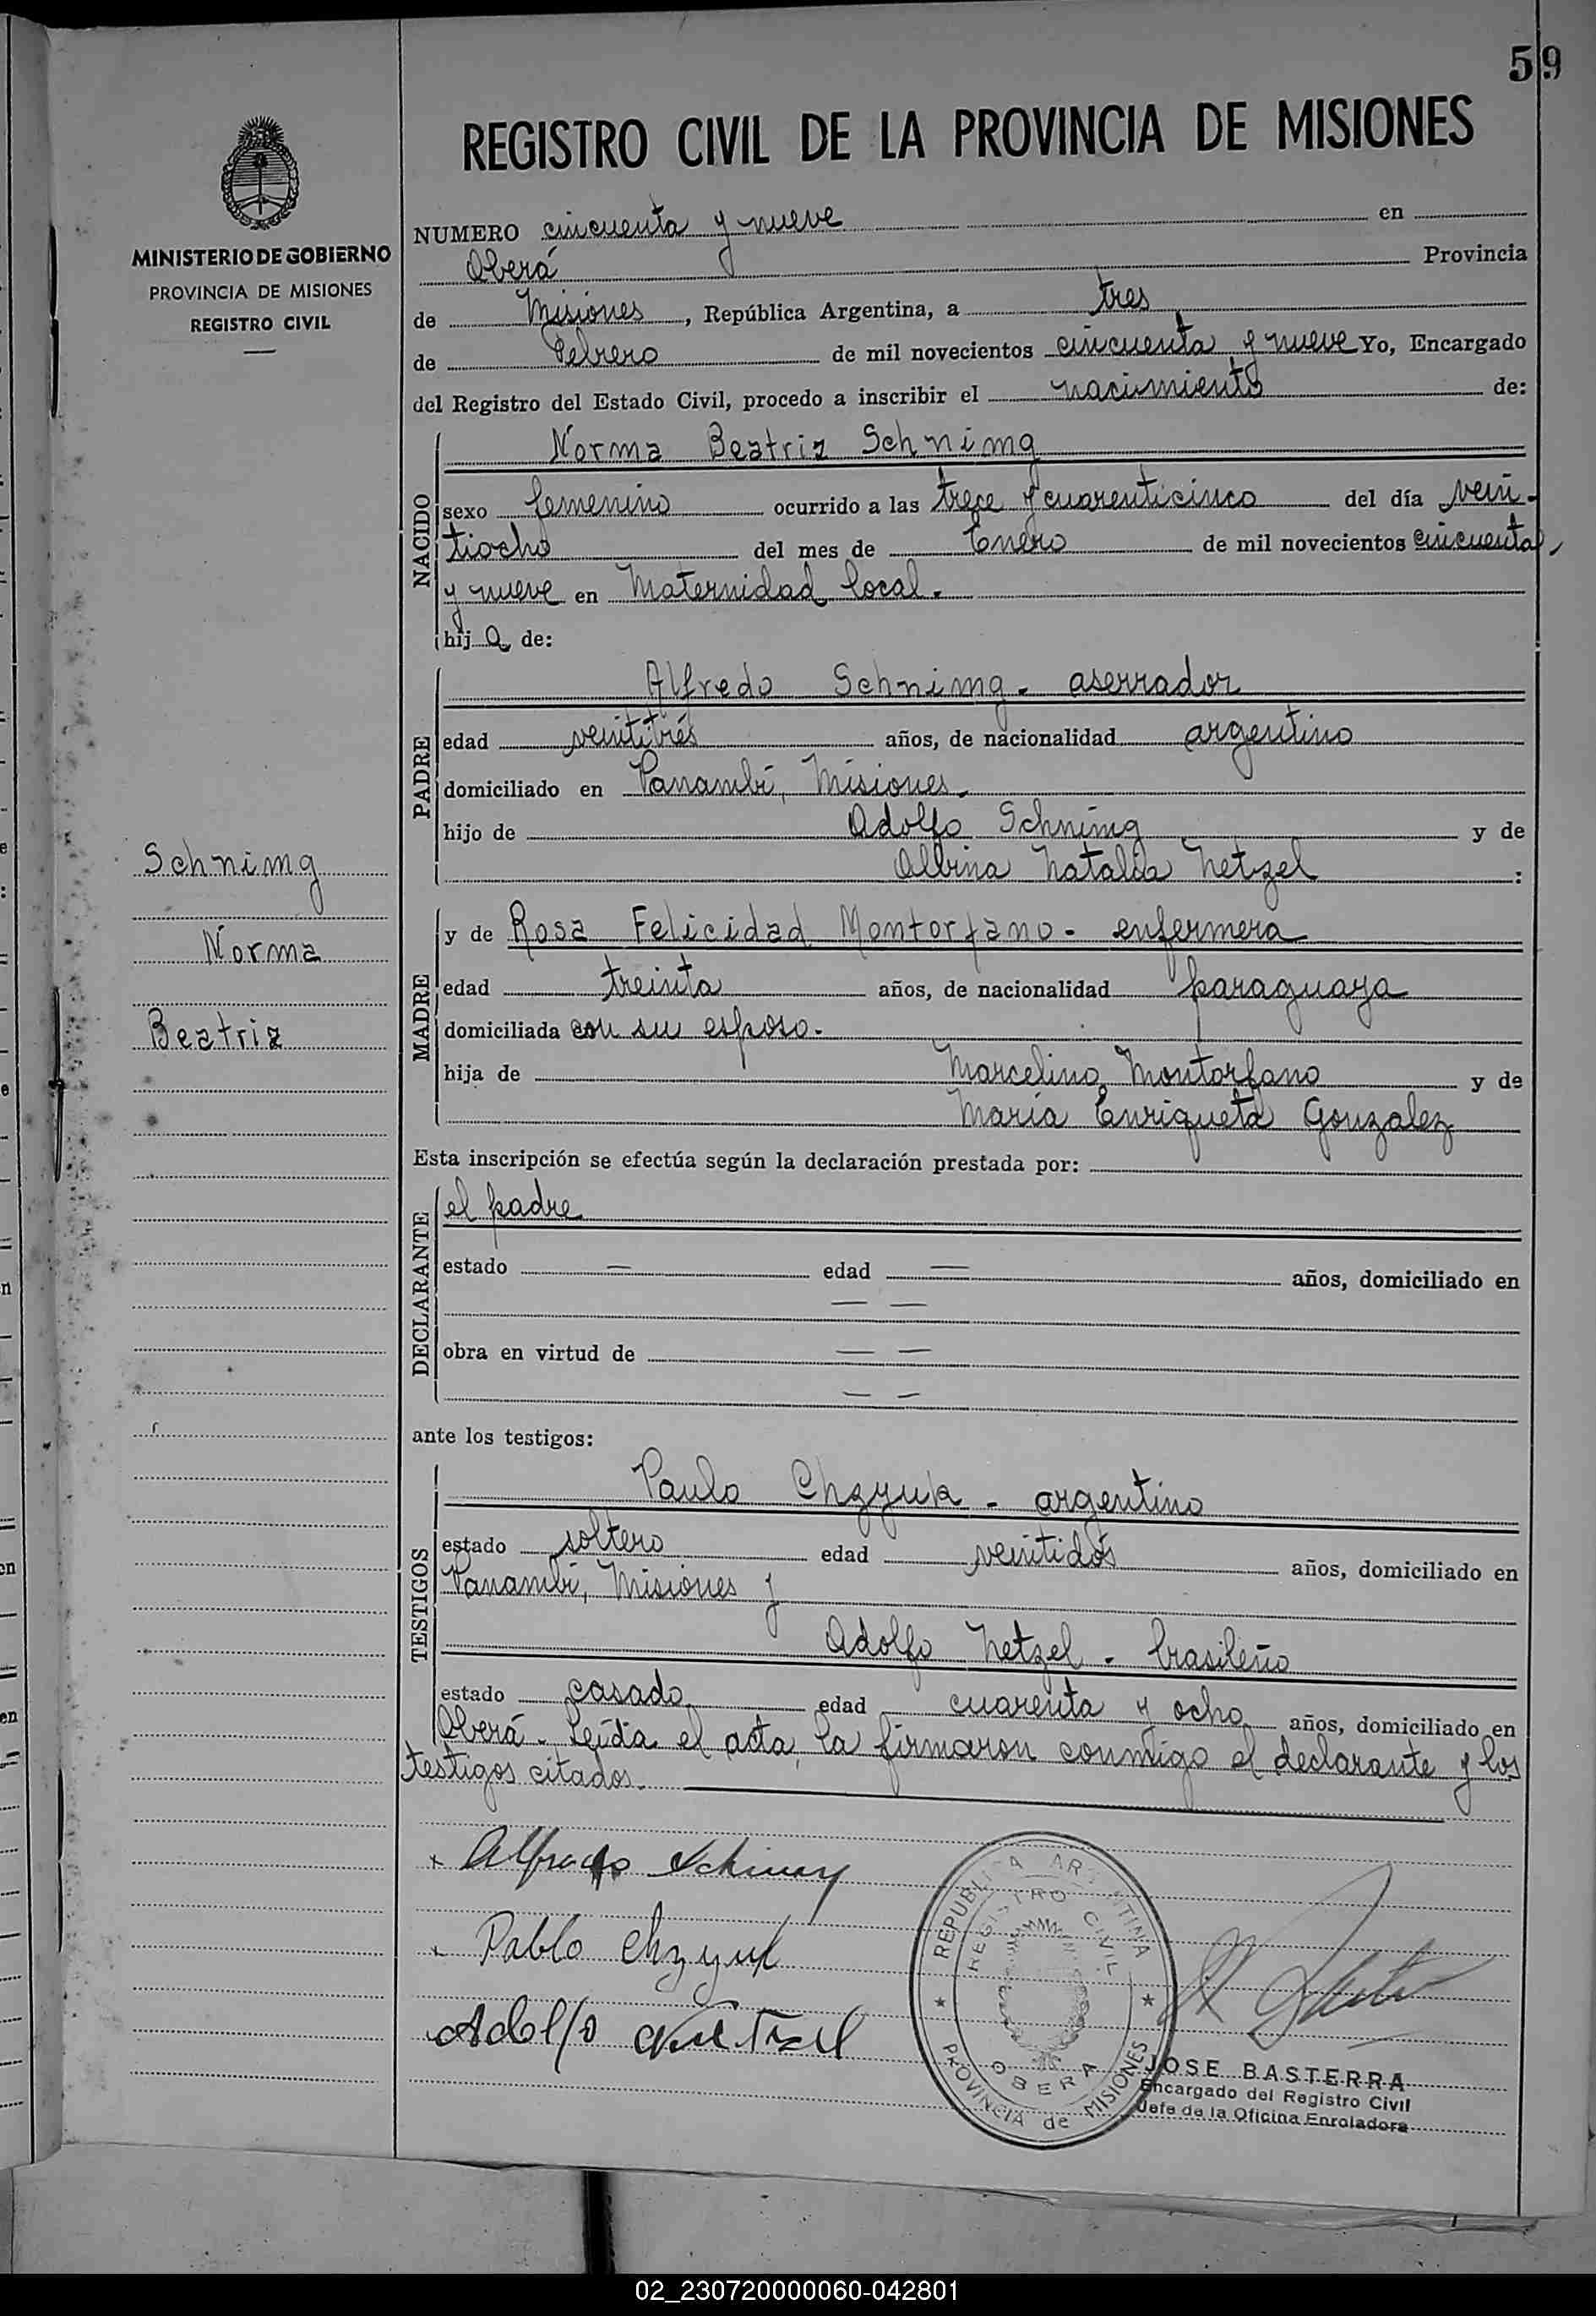 59
REGISTRO CIVIL DE LA PROVINCIA DE MISIONES
MINISTERIO DE GOBIERNO
PROVINCIA DE MISIONES
REGISTRO CIVIL
NUMERO cincuenta y nueve en
Oberá Provincia
de Misiones, República Argentina, a tres
de Febrero de mil novecientos cincuenta y nueve Yo, Encargado
del Registro del Estado Civil, procedo a inscribir el nacimiento de:
NACIDO
Norma Beatriz Schnimg
sexo femenino ocurrido a las trece y cuarenticinco del día vein-
tiocho del mes de Enero de mil novecientos cincuenta
y nueve en Maternidad local.
hija de:
PADRE
Alfredo Schnimg - aserrador
edad veintitrés años, de nacionalidad argentino
domiciliado en Panambí, Misiones.
hijo de Adolfo Schnimg y de
Albina Natalia Netzel :
Schnimg
Norma
Beatriz
MADRE
y de Rosa Felicidad Montorfano - enfermera
edad treinta años, de nacionalidad paraguaya
domiciliada con su esposo.
hija de Marcelino Montorfano y de
María Enriqueta Gonzalez
Esta inscripción se efectúa según la declaración prestada por:
DECLARANTE
el padre
estado — edad — años, domiciliado en
— —
obra en virtud de — —
— —
ante los testigos:
TESTIGOS
Paulo Chzyuk - argentino
estado soltero edad veintidós años, domiciliado en
Panambí, Misiones y
Adolfo Netzel - brasileño
estado casado edad cuarenta y ocho años, domiciliado en
Oberá. Leída el acta, la firmaron conmigo el declarante y los
testigos citados.
Alfredo
Pablo Chzyuk
Adolfo
REPUBLICA ARGENTINA
REGISTRO CIVIL
OBERA
PROVINCIA de MISIONES
JOSE BASTERRA
Encargado del Registro Civil
Jefe de la Oficina Enroladora
02_230720000060-042801